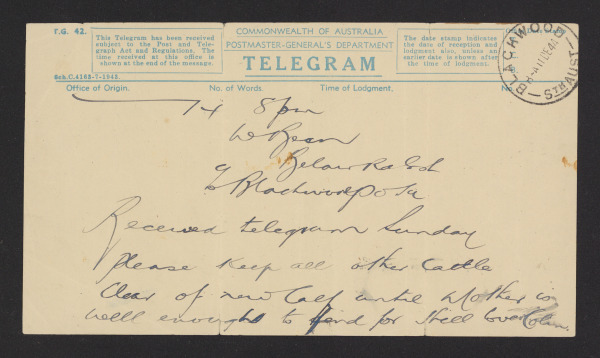 T.G. 42.
This Telegram has been received
subject to the Post and Tele-
graph Act and Regulations. The
time received at this office is
shown at the end of the message.
Sch.C.4163-7-1943.
COMMONWEALTH OF AUSTRALIA
POSTMASTER-GENERAL'S DEPARTMENT
TELEGRAM
The date stamp indicates
the date of reception and
lodgment also, unless an
earlier date is shown after
the time of lodgment.
BLACKWOOD
STH AUST
Office of Origin. No. of Words. Time of Lodgment. No.
14 8 pm
W Bean
c/o Blackwood PO SA
Received telegram Sunday
please keep all other Cattle
clear of new Calf until Mother is
well enough to fend for itself love Colin